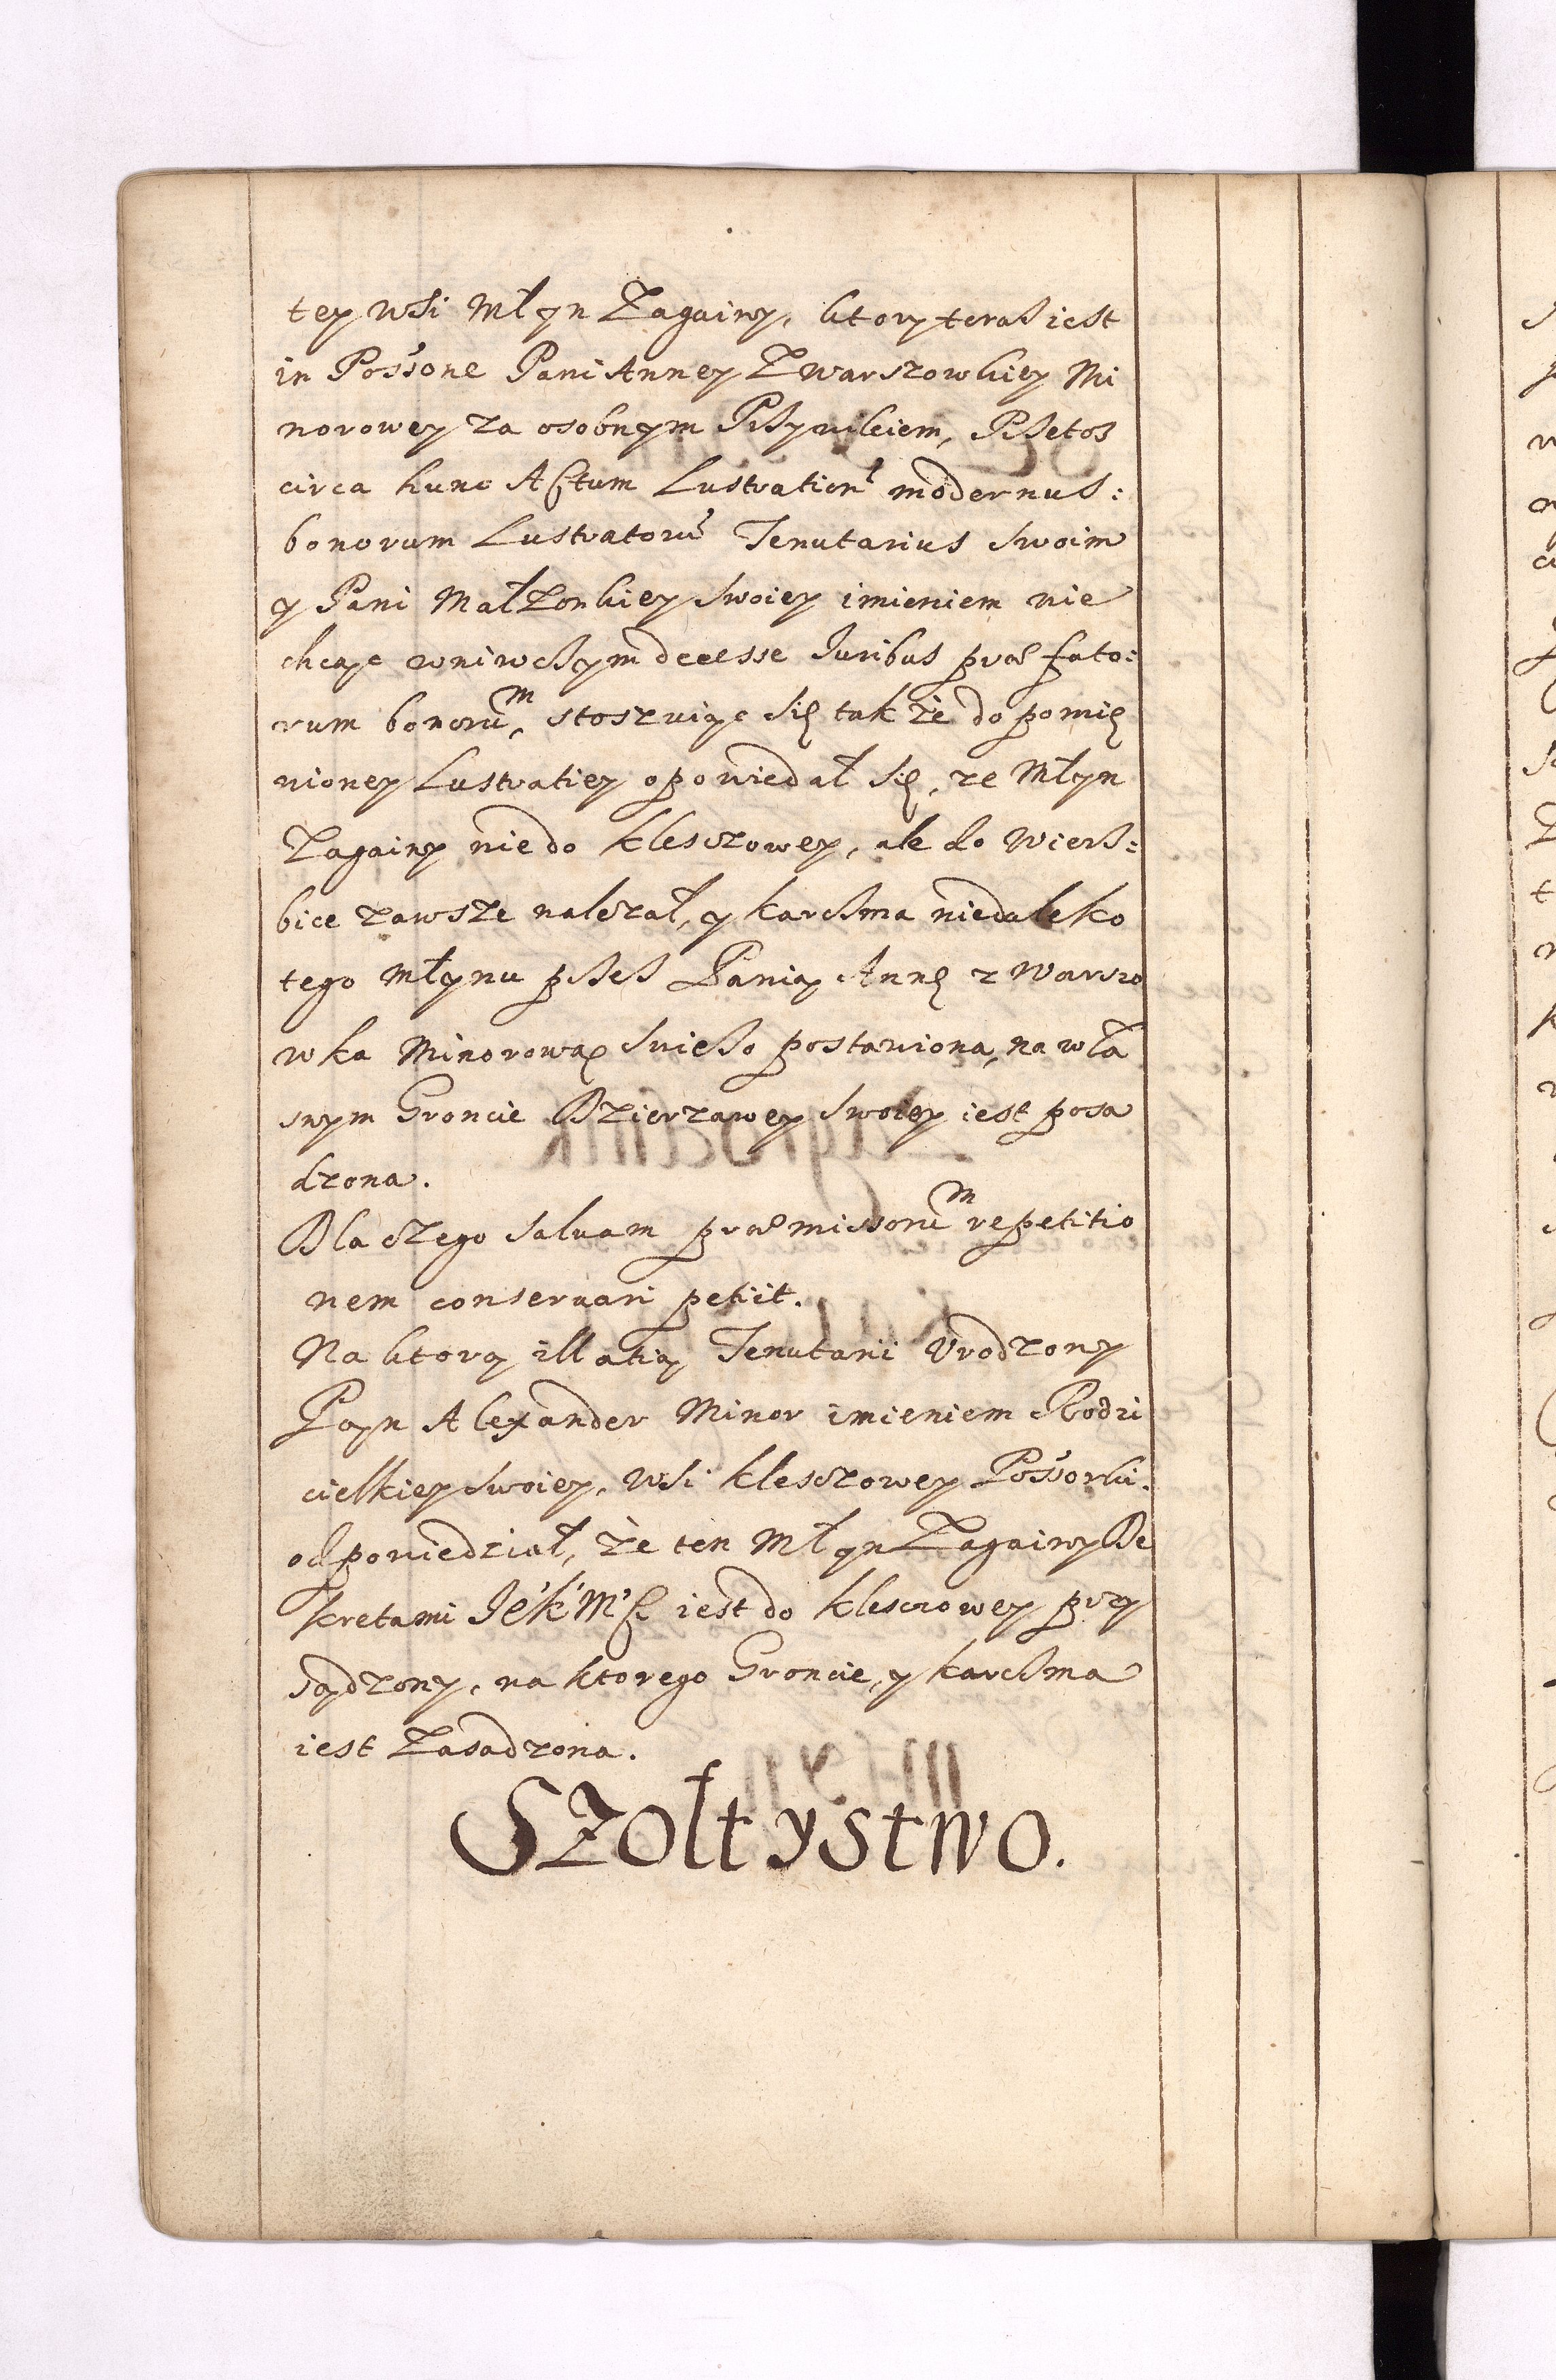 tey wsi Młyn Zagainy, ktory teras iest
in Possone Pani Anney Zwarszowkiey Mi
norowey za osobnym Przywileiem, Przetoz
circa hunc Actum Lustrationis modernus:
bonorum Lustratorum Tenutarius Swoim
y Pani Małzonkiey Swoiey imieniem nie
chcąc wniwczym deesse Juribus præfato:
rum bonorum, stoszuiąc się także do pomię
nioney Lustratiey opowiedał się, ze Młyn
Zagainy niedo Klesczowey, ale do Wiers:
bice zawsze nalezał, y karczma niedaleko
tego Młynu przes Panią Annę z Warszo
wka Minorową swiezo postawiona, na wła
snym Groncie Dzierzawey Swoiey iest posa
dzona.
Dla czego salvam præmissorum repetitio
nem conservari petiit.
Na ktorą illatią Tenutarii Vrodzony
Pąn Alexander Minor imieniem Rodzi
cielkiey Swoiey, wsi Klesczowey Possorki:
odpowiedział, że ten Młyn Zagainy De
kretami Je K Mści iest do Klesczowey przy
sądzony, na ktorego Groncie, y karczma
iest Zasadzona.
Szołtystwo.